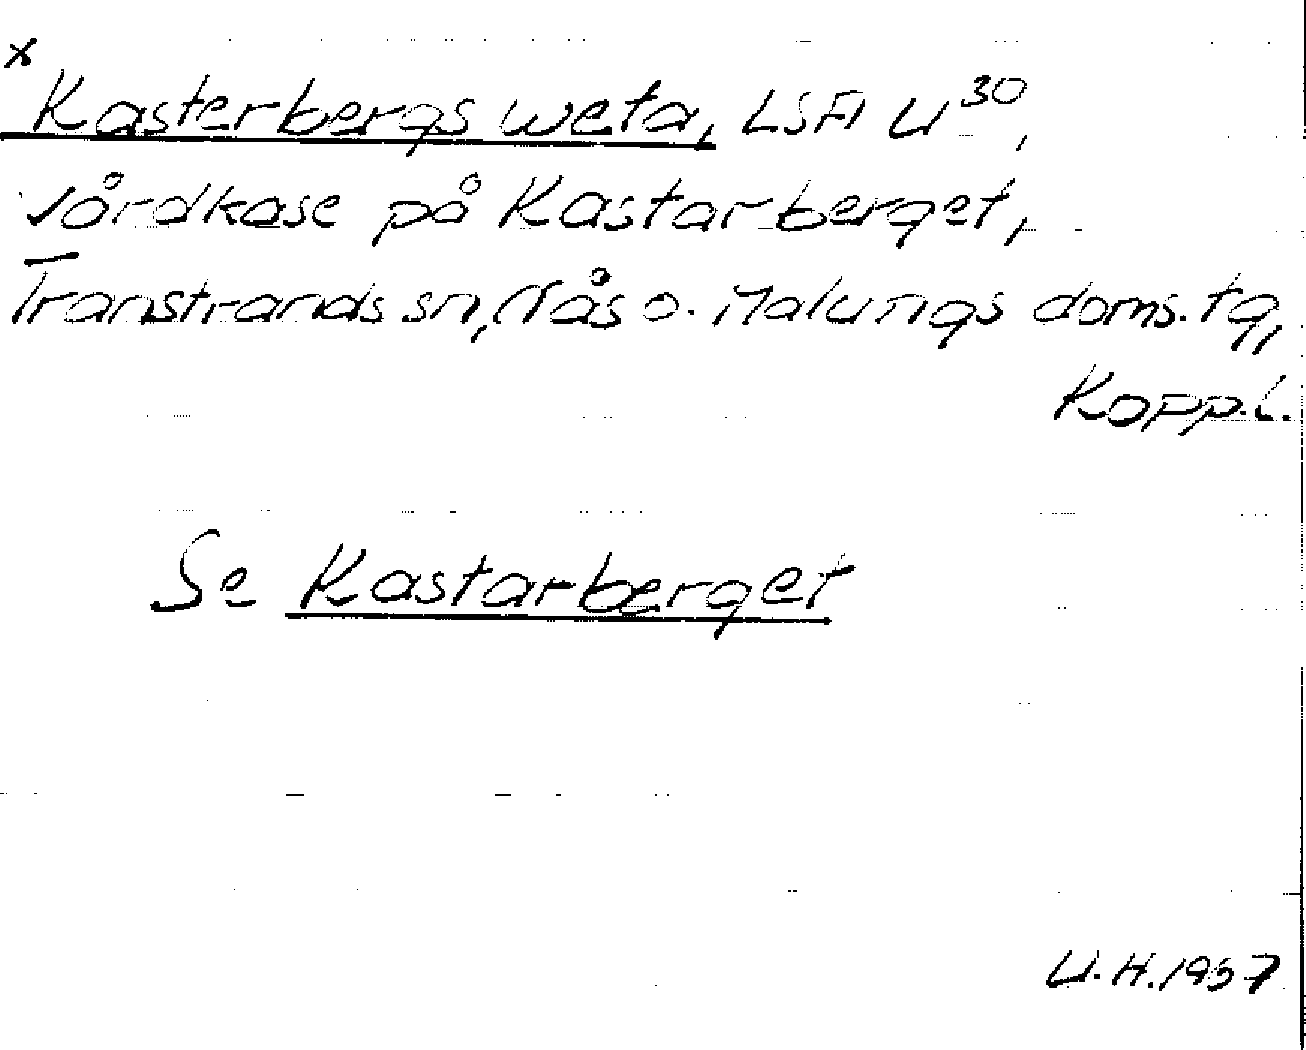 x
Kasterbergs weta, LSA U30,
vårdkase på Kastarberget,
Transtrands sn, Nås o. Malungs doms. tg,
Kopp.l.
Se Kastarberget
U.H. 1967